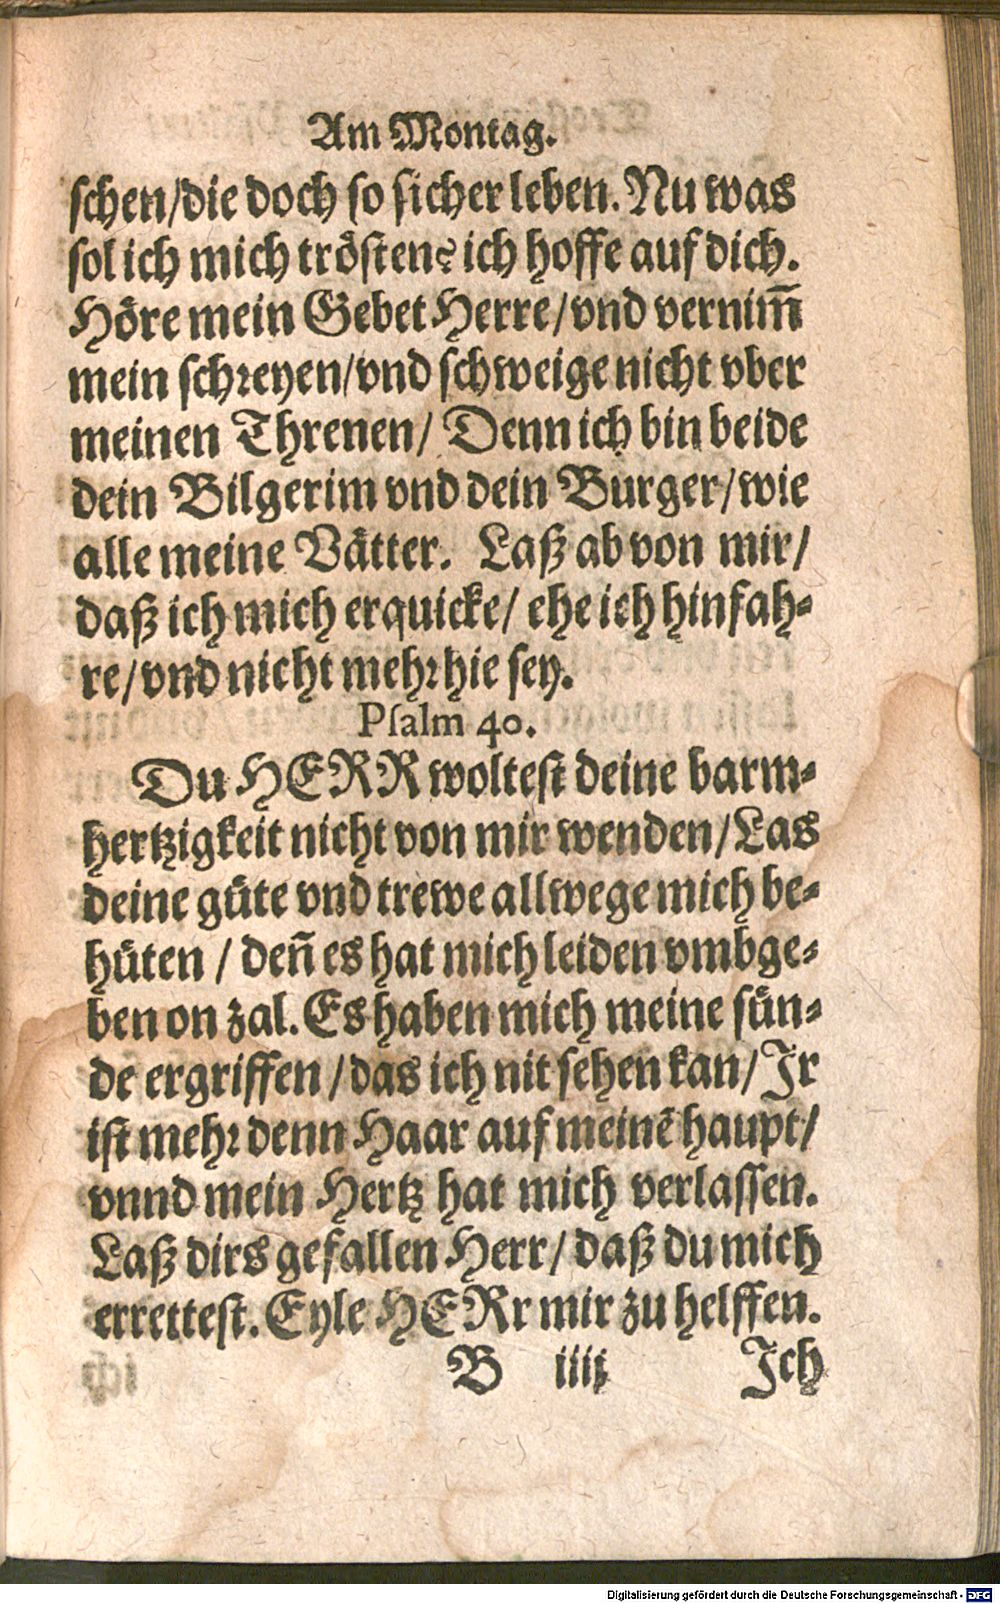 Am Montag.
schen/die doch so sicher leben. Nu was
sol ich mich trösten? ich hoffe auf dich.
Höre mein Gebet Herre/vnd vernim̃
mein schreyen/vnd schweige nicht vber
meinen Threnen/ Denn ich bin beide
dein Bilgerim vnd dein Burger/wie
alle meine Vätter. Laß ab von mir/
daß ich mich erquicke/ ehe ich hinfah-
re/vnd nicht mehr hie sey.
Psalm 40.
Du HERR woltest deine barm-
hertzigkeit nicht von mir wenden/Las
deine güte vnd trewe allwege mich be-
hüten / deñ es hat mich leiden vmbge-
ben on zal. Es haben mich meine sün-
de ergriffen/das ich nit sehen kan/Jr
ist mehr denn Haar auf meinē haupt/
vnnd mein Hertz hat mich verlassen.
Laß dirs gefallen Herr/ daß du mich
errettest. Eyle HERr mir zu helffen.
B iiij Jch
Digitalisierung gefördert durch die Deutsche Forschungsgemeinschaft - DFG